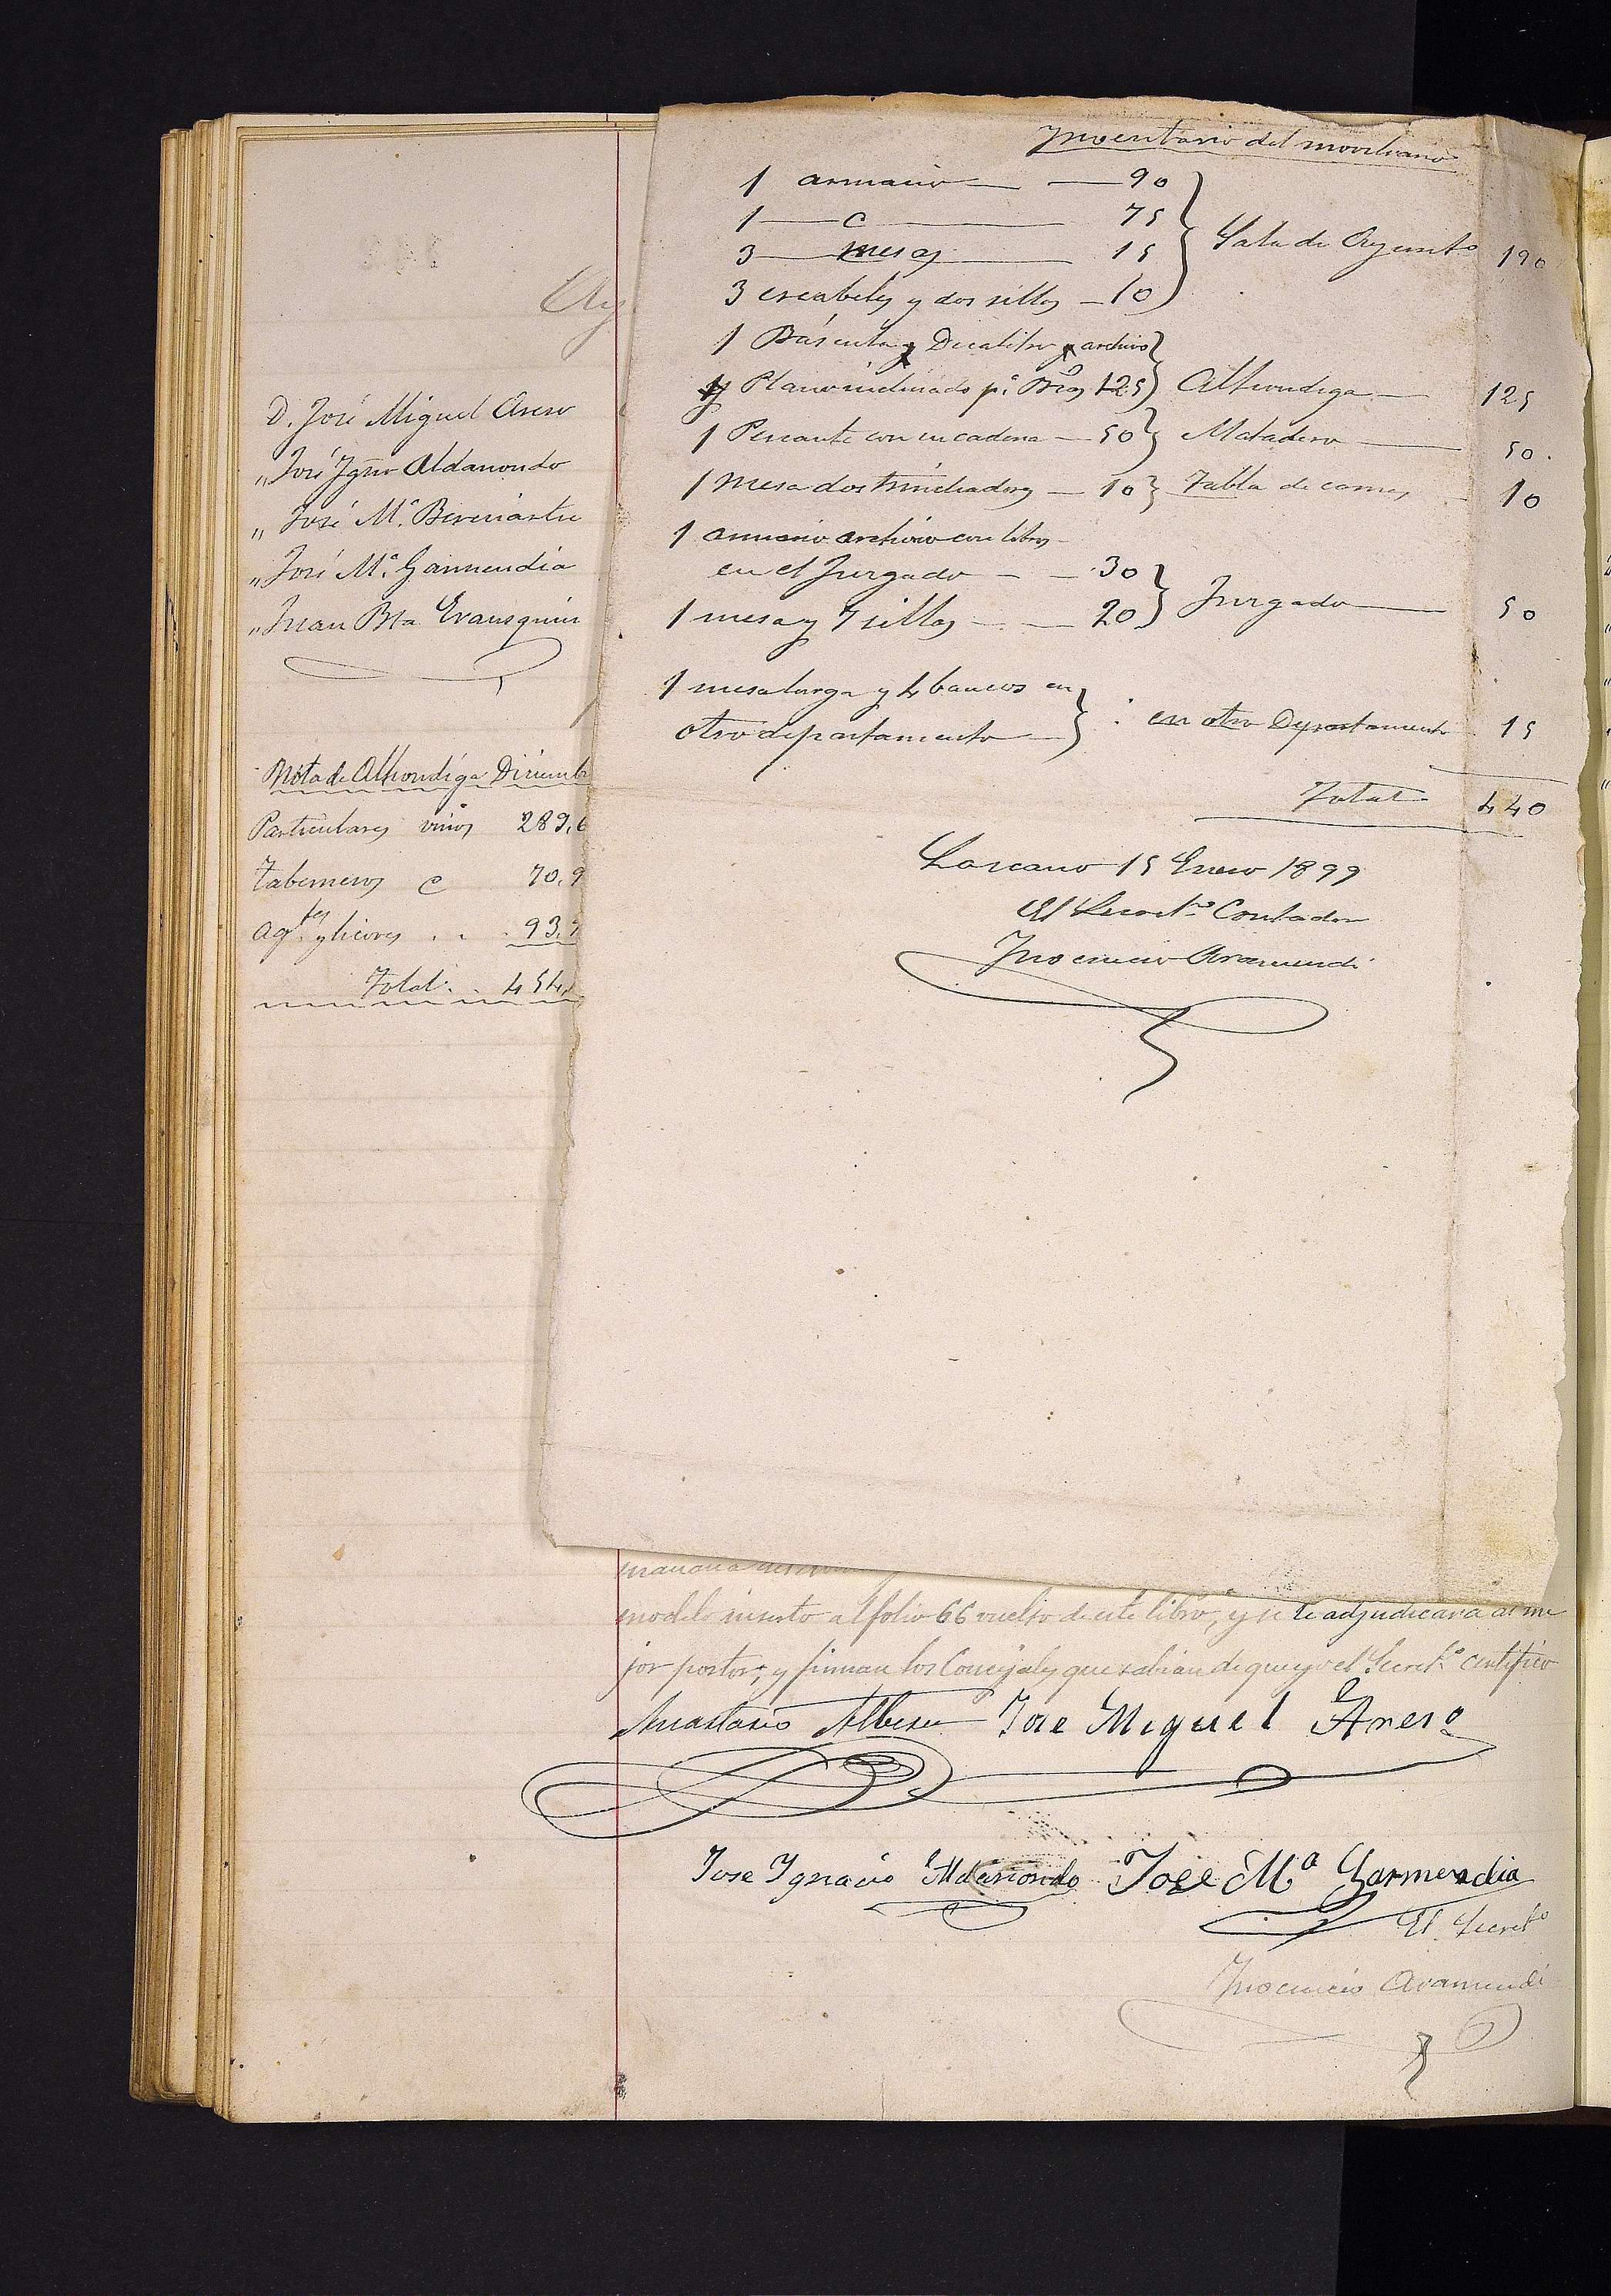 Inventario del moviliario
1 armario — 90
1 — c — 75
3 — mesas — 15 } Sala de Ayunto 190
3 escabeles y dos sillas — 10
1 Báscula y Decalitro y archivo
y Plano inclinado pª 125 } Alhondiga — 125
1 Pescante con su cadena — 50 } Matadero — 50.
1 Mesa dos trinchadores — 10 } Tabla de carnes 10
1 armario archivo con libros
en el Juzgado — 30 } Juzgado — 50
1 mesa y 7 sillas — 20
1 mesa larga y 4 bancos en
otro departamento } en otro Departamento 15
Total 440
Lazcano 15 Enero 1899
El Secretº Contador
Inocencio Aramendi
Ay
D. José Miguel Areso
" José Ygnº Aldanondo
" José Mª. Bereciartu
" José Mª. Garmendia
" Juan Bta
Nota de Alhondiga Diciemb
Particulares vinos 289,6
Taberneros c 70,9
Agtes y licores . . 93,
Total . . 454,
mañana
modelo inserto al folio 66 vuelto de este libro, y se le adjudicará al me
jor postor; y firman los Concejales que sabian de que yo el Secretº certifico
Anastasio Alberdi Jose Miguel Areso
Jose Ygnacio Aldanondo Jose Mª Garmendia
El Secretº
Inocencio Aramendi